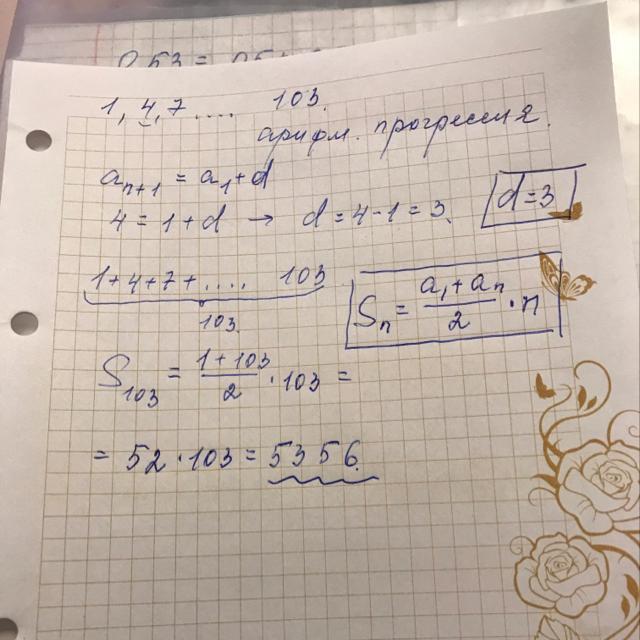 1, 4, 7 .... 103.
арифм. прогрессия.
aₙ₊₁ = a₁ + d
4 = 1 + d → d = 4 - 1 = 3. d = 3
1 + 4 + 7 + .... 103
103.
Sₙ = (a₁ + aₙ)/2 · n
S₁₀₃ = (1 + 103)/2 · 103 =
= 52 · 103 = 5356.